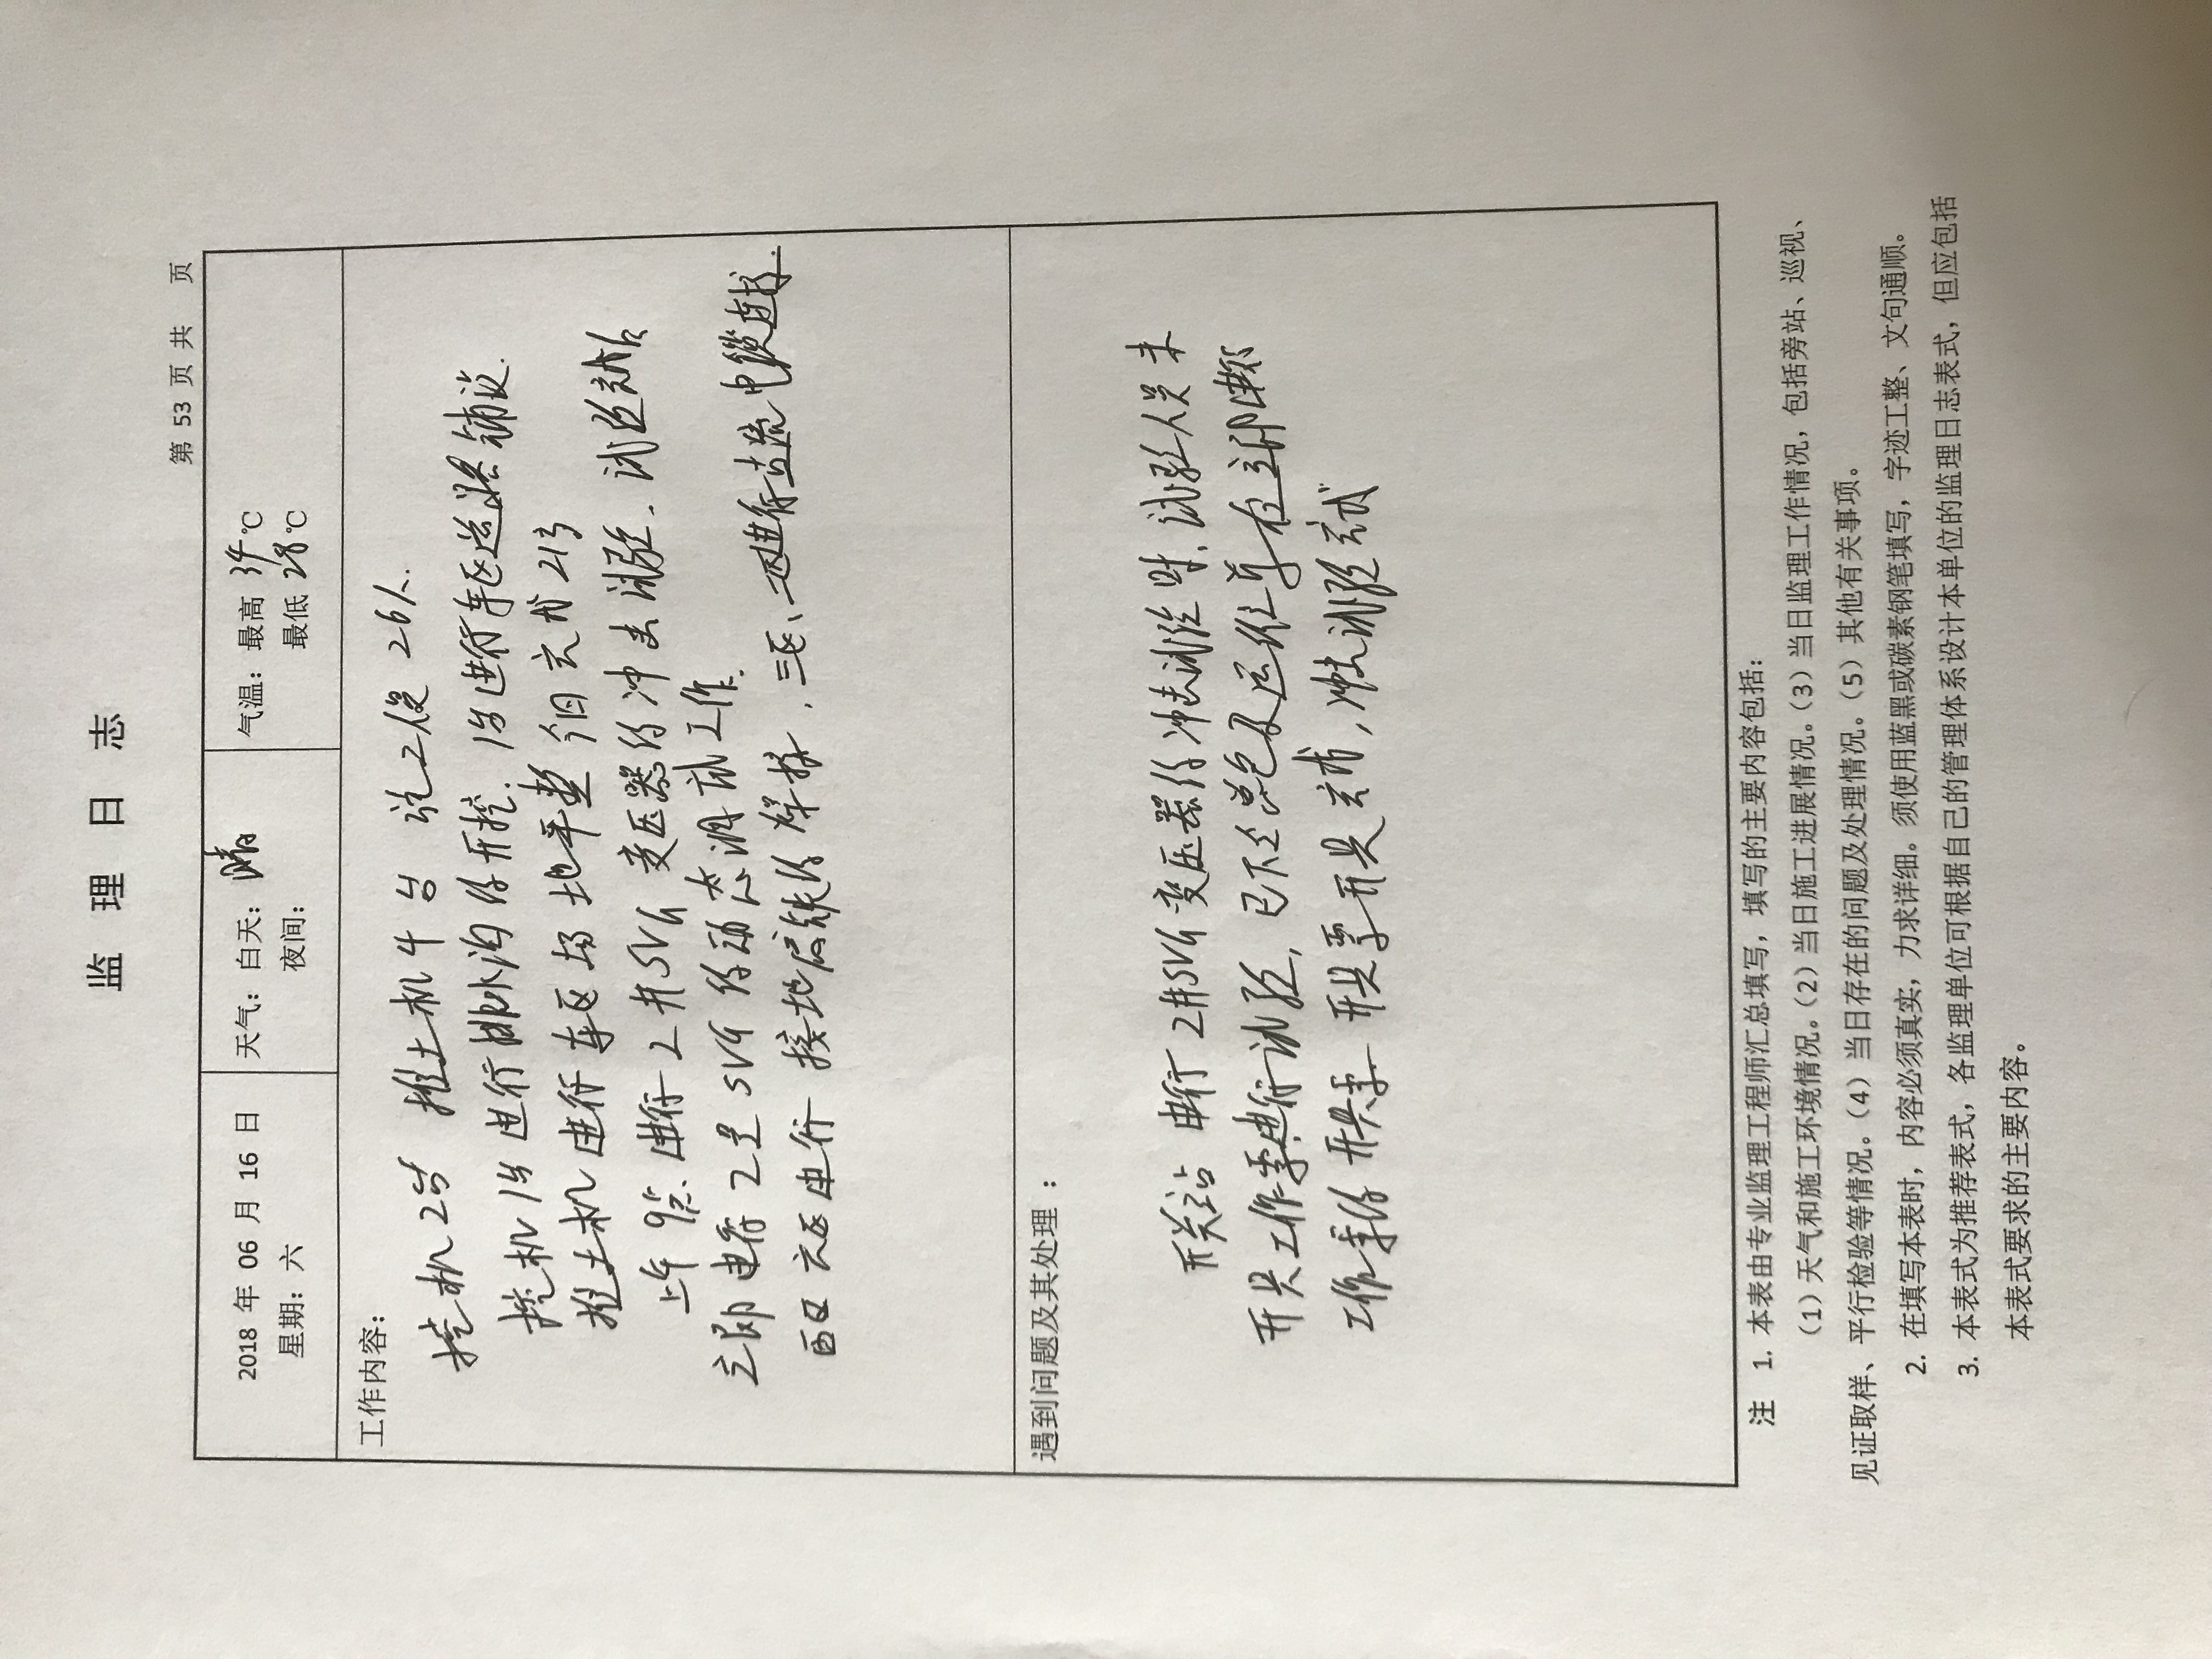 监 理 日 志
第 53 页 共 页
2018 年 06 月 16 日
星期：六
天气：白天：晴
夜间：
气温：最高 34 ℃
最低 28 ℃
工作内容：
挖机2台 推土机4台 施工人员 26人.
挖机1台进行排水沟的开挖. 1台进行车区道路铺设.
推土机进行车区场地平整
上午9点.进行2#SVG变压器的冲击试验. 试验完成后
立即进行2号SVG的动态调试工作.
配区 六区进行接地扁铁的焊接. 三区、进行直流电缆
遇到问题及其处理：
开关站 进行2#SVG变压器的冲击试验时,试验人员未
开具工作票进行试验, 已下令总包及运维单位立即
工作票的开具 , 冲击试验
注 1. 本表由专业监理工程师汇总填写，填写的主要内容包括：
（1）天气和施工环境情况。（2）当日施工进展情况。（3）当日监理工作情况，包括旁站、巡视、
见证取样、平行检验等情况。（4）当日存在的问题及处理情况。（5）其他有关事项。
2. 在填写本表时，内容必须真实，力求详细。须使用蓝黑或碳素钢笔填写，字迹工整、文句通顺。
3. 本表式为推荐表式，各监理单位可根据自己的管理体系设计本单位的监理日志表式，但应包括
本表式要求的主要内容。